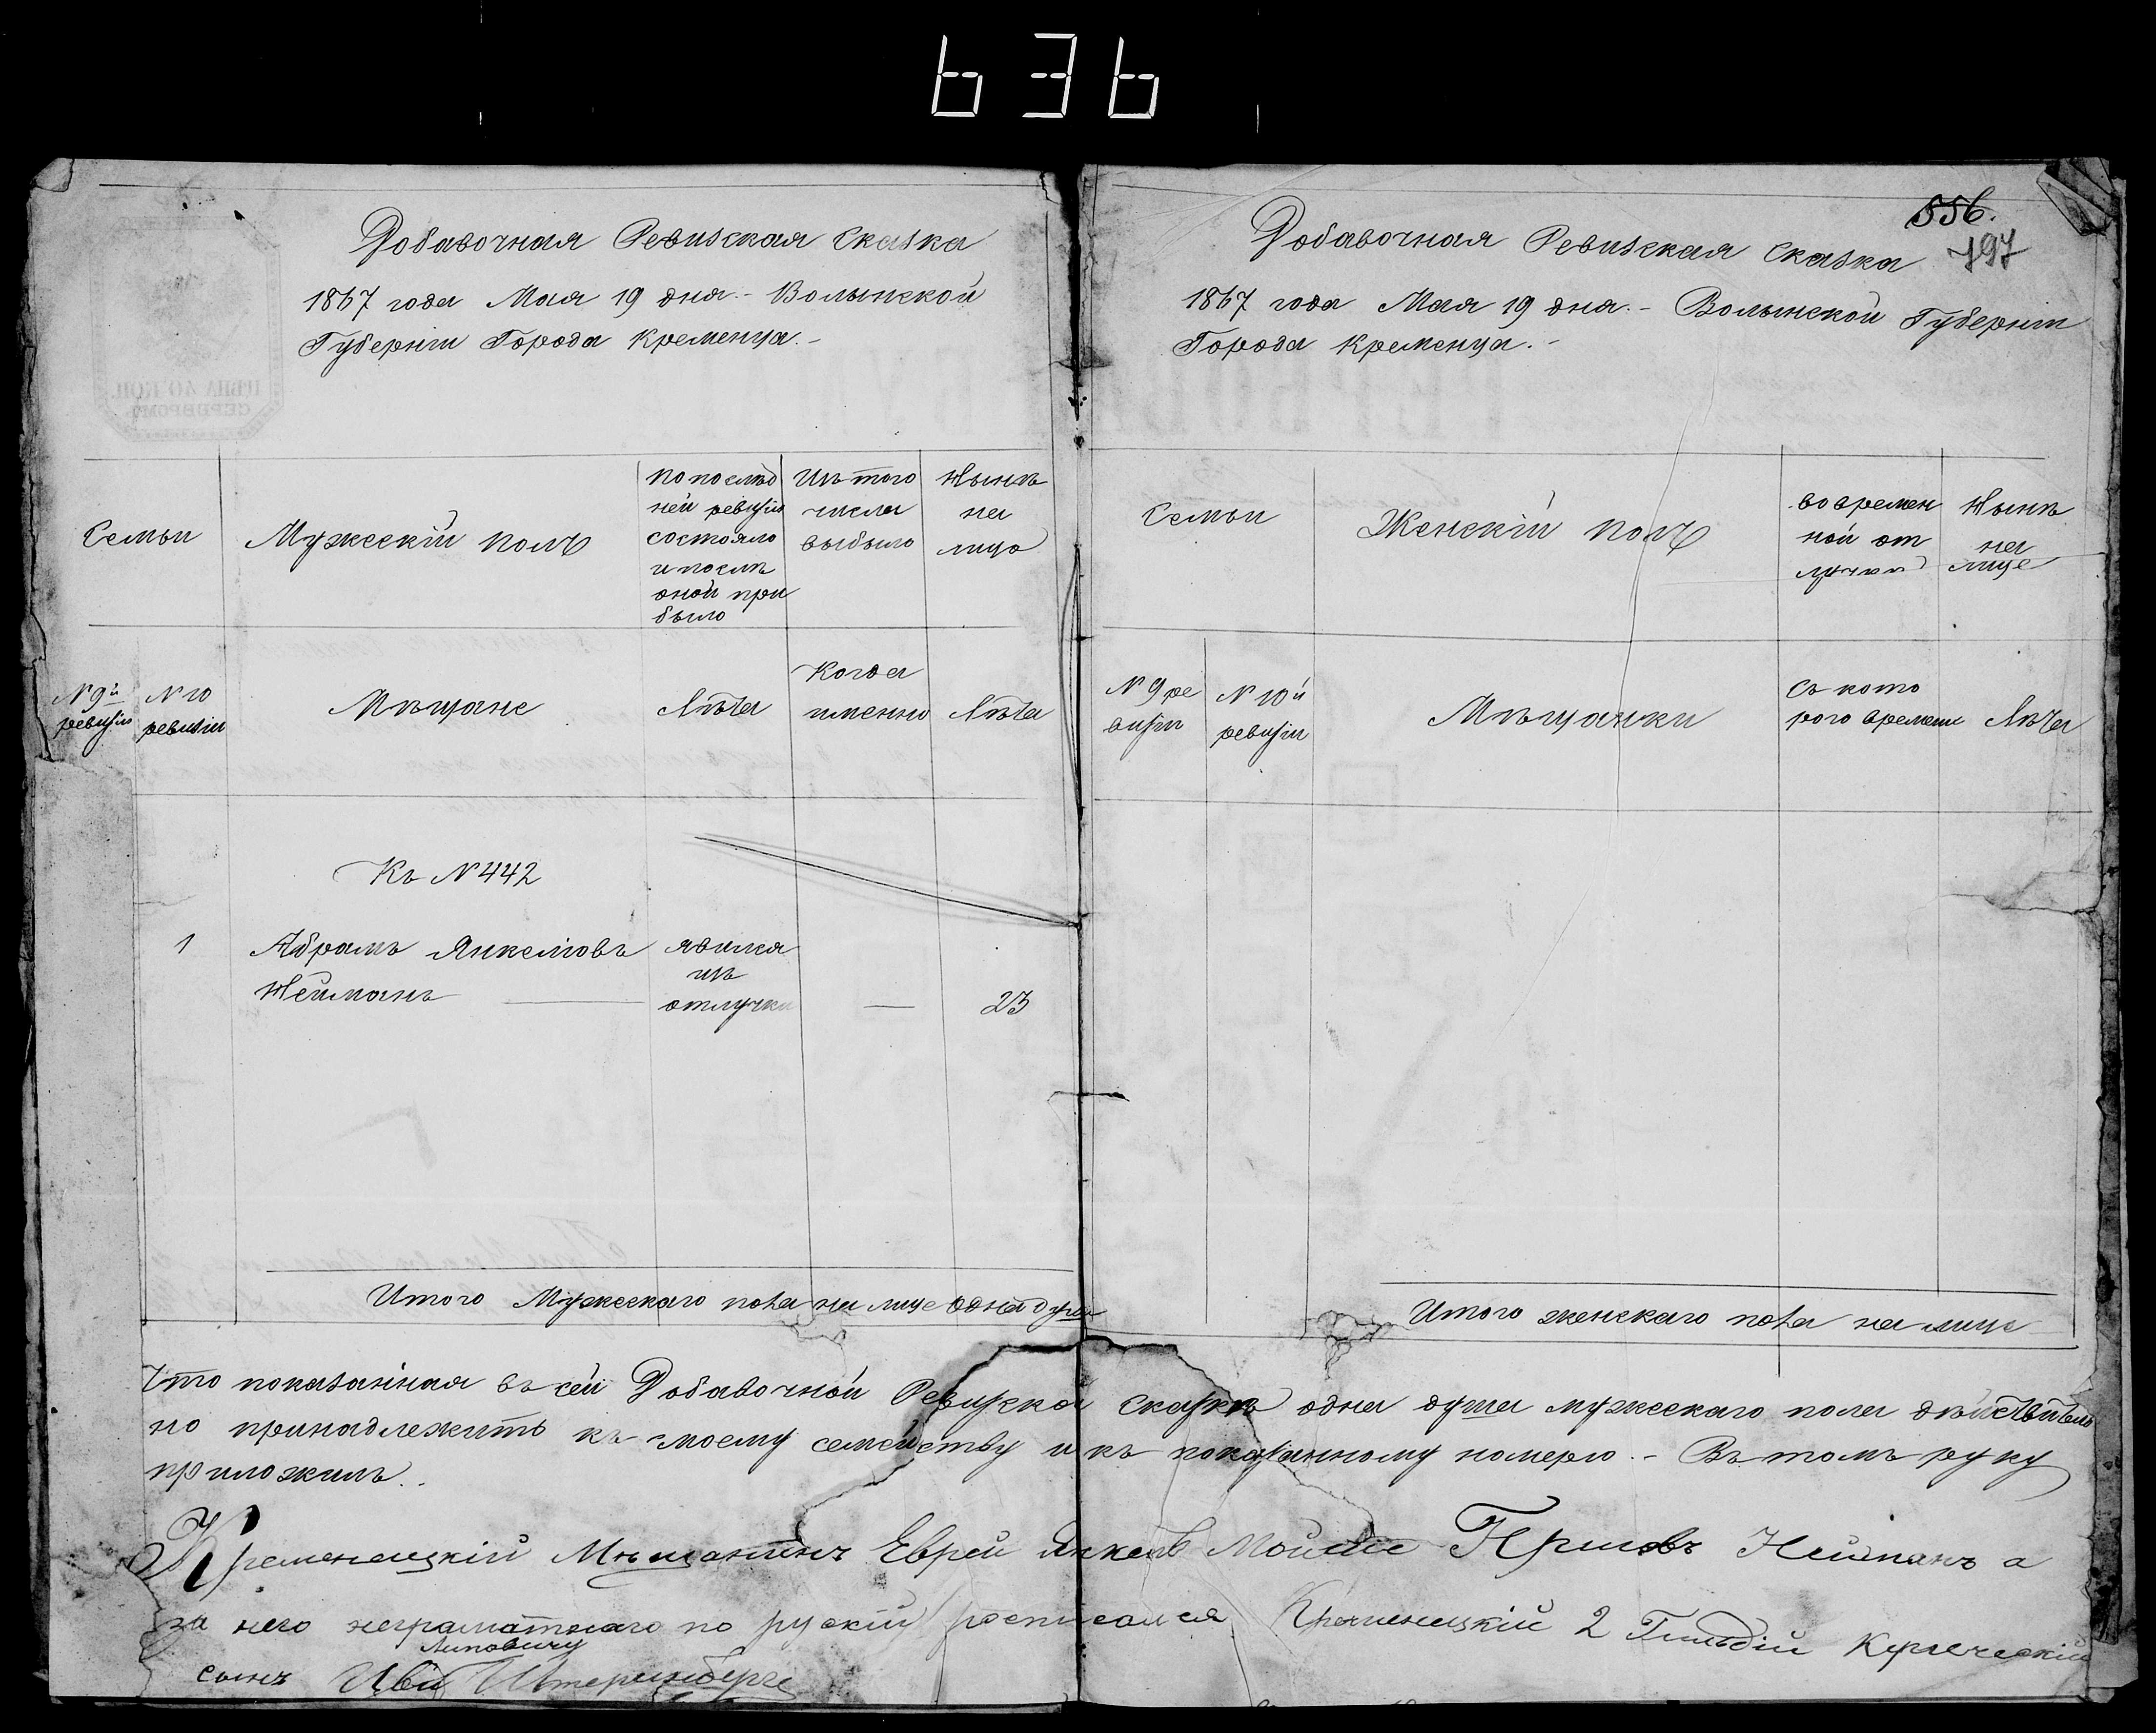 636
Добавочная Ревизская Сказка
1867 года Мая 19 дня.- Волынской
Губерніи Города Кременца.-
ЦѢНА 40 КОП.
СЕРЕБРОМЪ
Семьи
Мужескій полъ
По послѣд
ней ревизіи
состояло
и послѣ
оной при
было
Изъ того
числа
выбыло
Нынѣ
на
лицо
№ 9й
ревизіи
№ 10
ревизіи
Мѣщане
Лѣта
Когда
именно
Лѣта
Къ № 442
1
Абрамъ Янкелiовъ
Нейманъ
явился
изъ
отлучки
—
23
Итого Мужескаго пола на лице одна душа
556.
797
Добавочная Ревизская Сказка
1867 года Мая 19 дня.- Волынской Губерніи
Города Кременца.-
Семьи
Женскій полъ
во времен
ной от
лучки
Нынѣ
на
лице
№ 9 ре
визіи
№ 10й
ревизіи
Мѣщанки
Съ кото
рого времени
Лѣта
Итого женскаго пола на лице
Что показанная въ сей Добавочной Ревизкой Сказкѣ одна душа мужескаго пола дѣйствитель
но принадлежитъ къ моему семейству и къ показанному номерю.- Въ томъ руку
приложилъ.-
Кременецкій Мѣщанинъ Еврей Янкель Мойше Гершовъ Нейманъ а
за него неграмотнаго по рускій росписался Кременецкій 2 Гильдіи Купеческій
сынъ